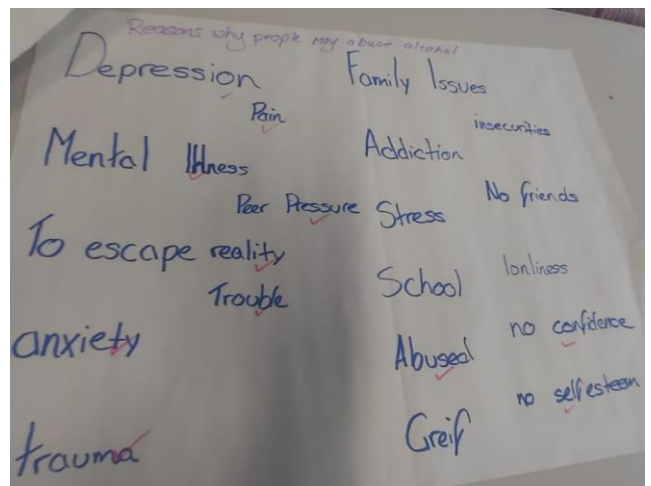 Reasons why people may abuse alcohol
Depression
Family Issues
Pain
insecurities
Mental Illness
Addiction
Peer Pressure
No friends
To escape reality
Stress
Trouble
lonliness
School
anxiety
no confidence
Abused
no selfesteem
trauma
Greif